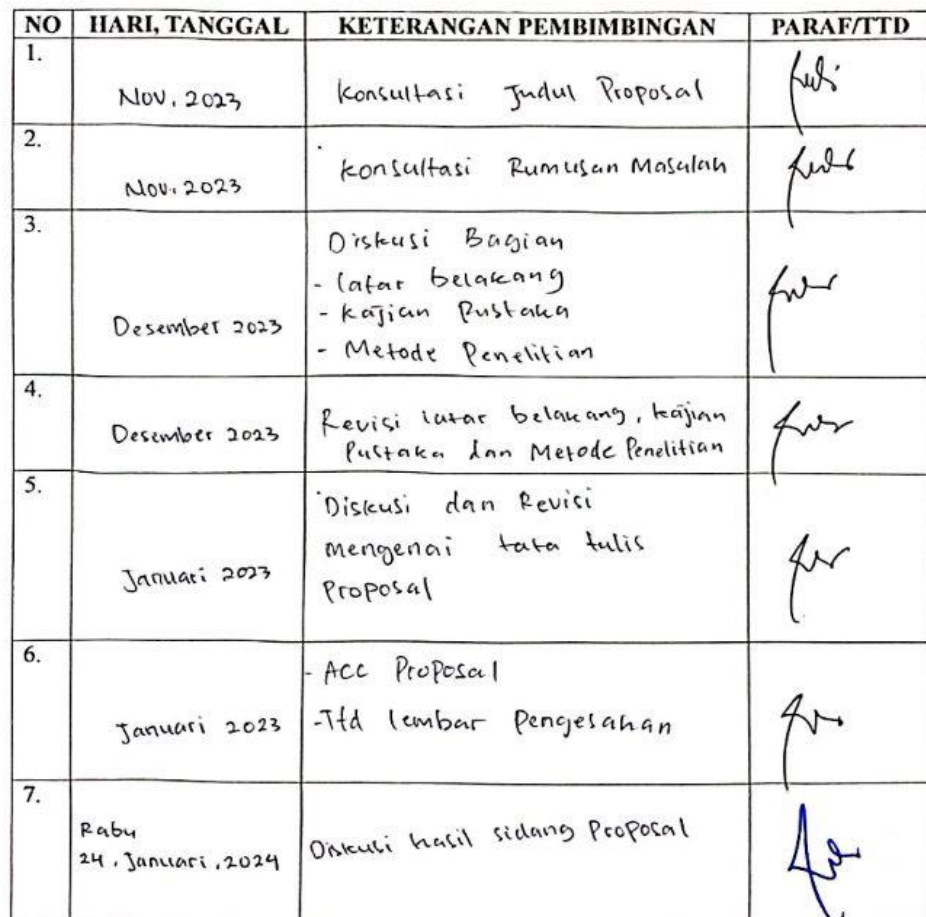 NO HARI, TANGGAL KETERANGAN PEMBIMBINGAN PARAF/TTD
1.
Nov. 2023 Konsultasi Judul Proposal
2.
Nov. 2023 Konsultasi Rumusan Masalah
3.
Diskusi Bagian
- latar belakang
- kajian Pustaka
Desember 2023
- Metode Penelitian
4.
Desember 2023 Revisi latar belakang, kajian
Pustaka dan Metode Penelitian
5.
Diskusi dan Revisi
mengenai tata tulis
Januari 2023
Proposal
6.
- ACC Proposal
Januari 2023 -Ttd lembar Pengesahan
7.
Rabu
24, Januari, 2024 Diskusi hasil sidang Proposal